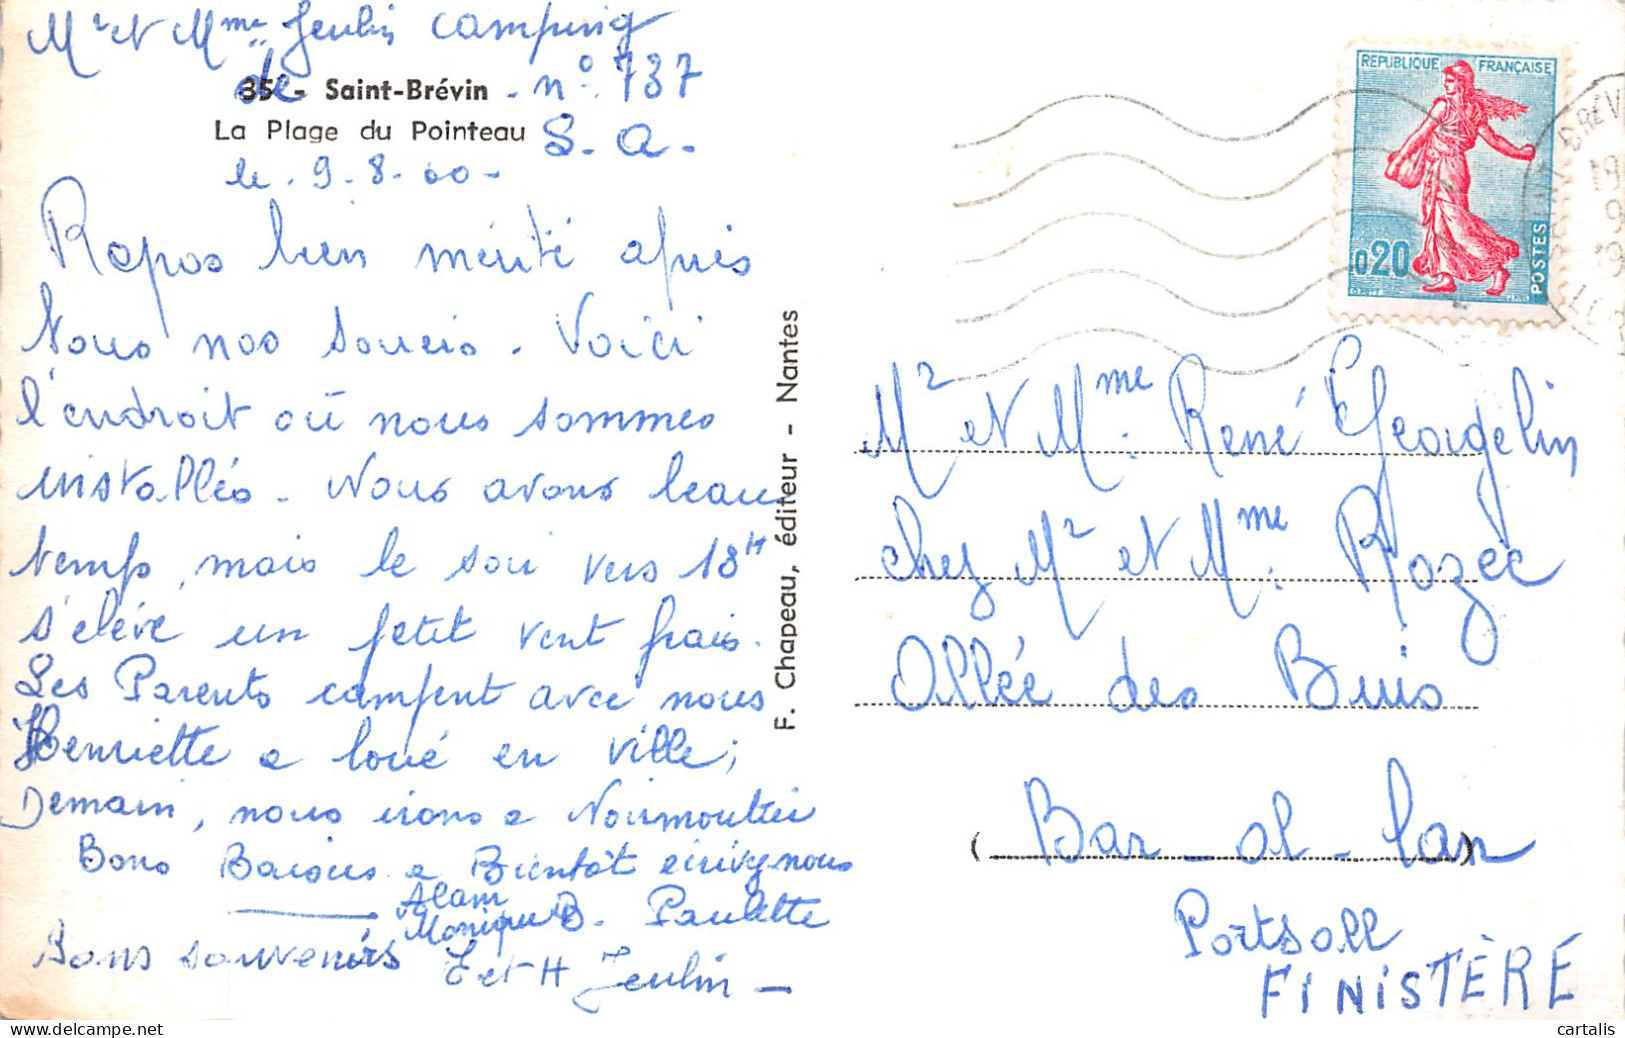 Mr et Mme Jeulin camping
de n° 737
35 - Saint-Brévin
La Plage du Pointeau S. A.
le . 9 - 8 - 60 -
Repos bien mérité après
tous nos soucis . Voici
l'endroit où nous sommes
installés . Nous avons beau
temps, mais le soir vers 18H
s'élève un petit vent frais.
Les Parents campent avec nous
Henriette a loué en ville ;
Demain, nous irons a Noirmoutier
Bons Baisers a Bientôt ecrivez nous
Alain
Monique B. Paulette
Bons souvenirs
E et H Jeulin -
F. Chapeau, éditeur - Nantes
REPUBLIQUE FRANÇAISE
0,20
POSTES
Mr et Mme René Georgelin
chez Mr et Mme Rozec
Allée des Buis
(Bar-al-lan)
Portsall
FINISTÈRE
Delcampe.net website
cartalis